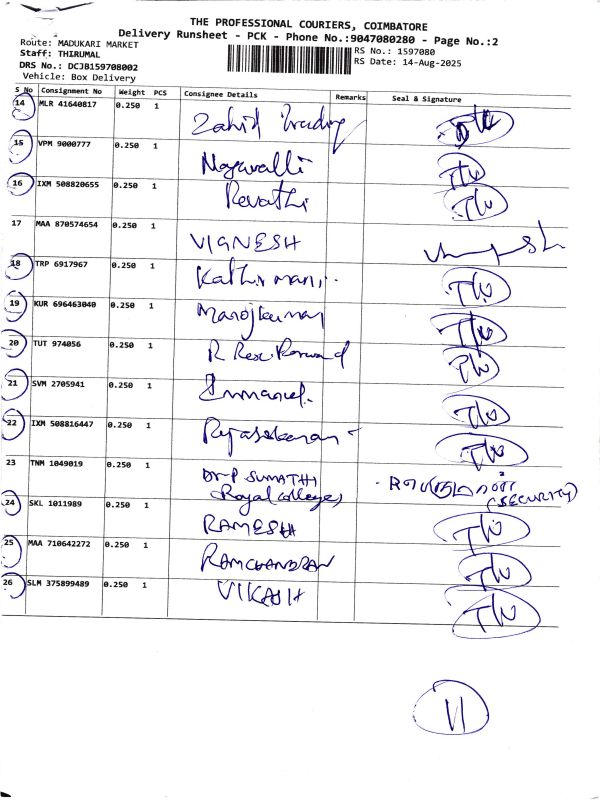 THE PROFESSIONAL COURIERS, COIMBATORE
Delivery Runsheet - PCK - Phone No.:9047080280 - Page No.:2
Route: MADUKARI MARKET
Staff: THIRUMAL
DRS No.: DCJB159708002
Vehicle: Box Delivery
RS No.: 1597080
RS Date: 14-Aug-2025
S No Consignment No Weight PCS Consignee Details Remarks Seal & Signature
14 MLR 41640817 0.250 1 Zahid Trading
15 VPM 9000777 0.250 1 Nagavalli
16 IXM 508820655 0.250 1 Revathi
17 MAA 870574654 0.250 1 VIGNESH
18 TRP 6917967 0.250 1 Kathirmani
19 KUR 696463040 0.250 1 Manojkumar
20 TUT 974056 0.250 1 R
21 SVM 2705941 0.250 1 Immanuel.
22 IXM 508816447 0.250 1 Rajasekaran
23 TNM 1049019 0.250 1 Dr P SUMATHI
(Royal College) (SECURITY)
24 SKL 1011989 0.250 1 RAMESH
25 MAA 710642272 0.250 1 RAMCHANDRAN
26 SLM 375899489 0.250 1 VIKASH
11